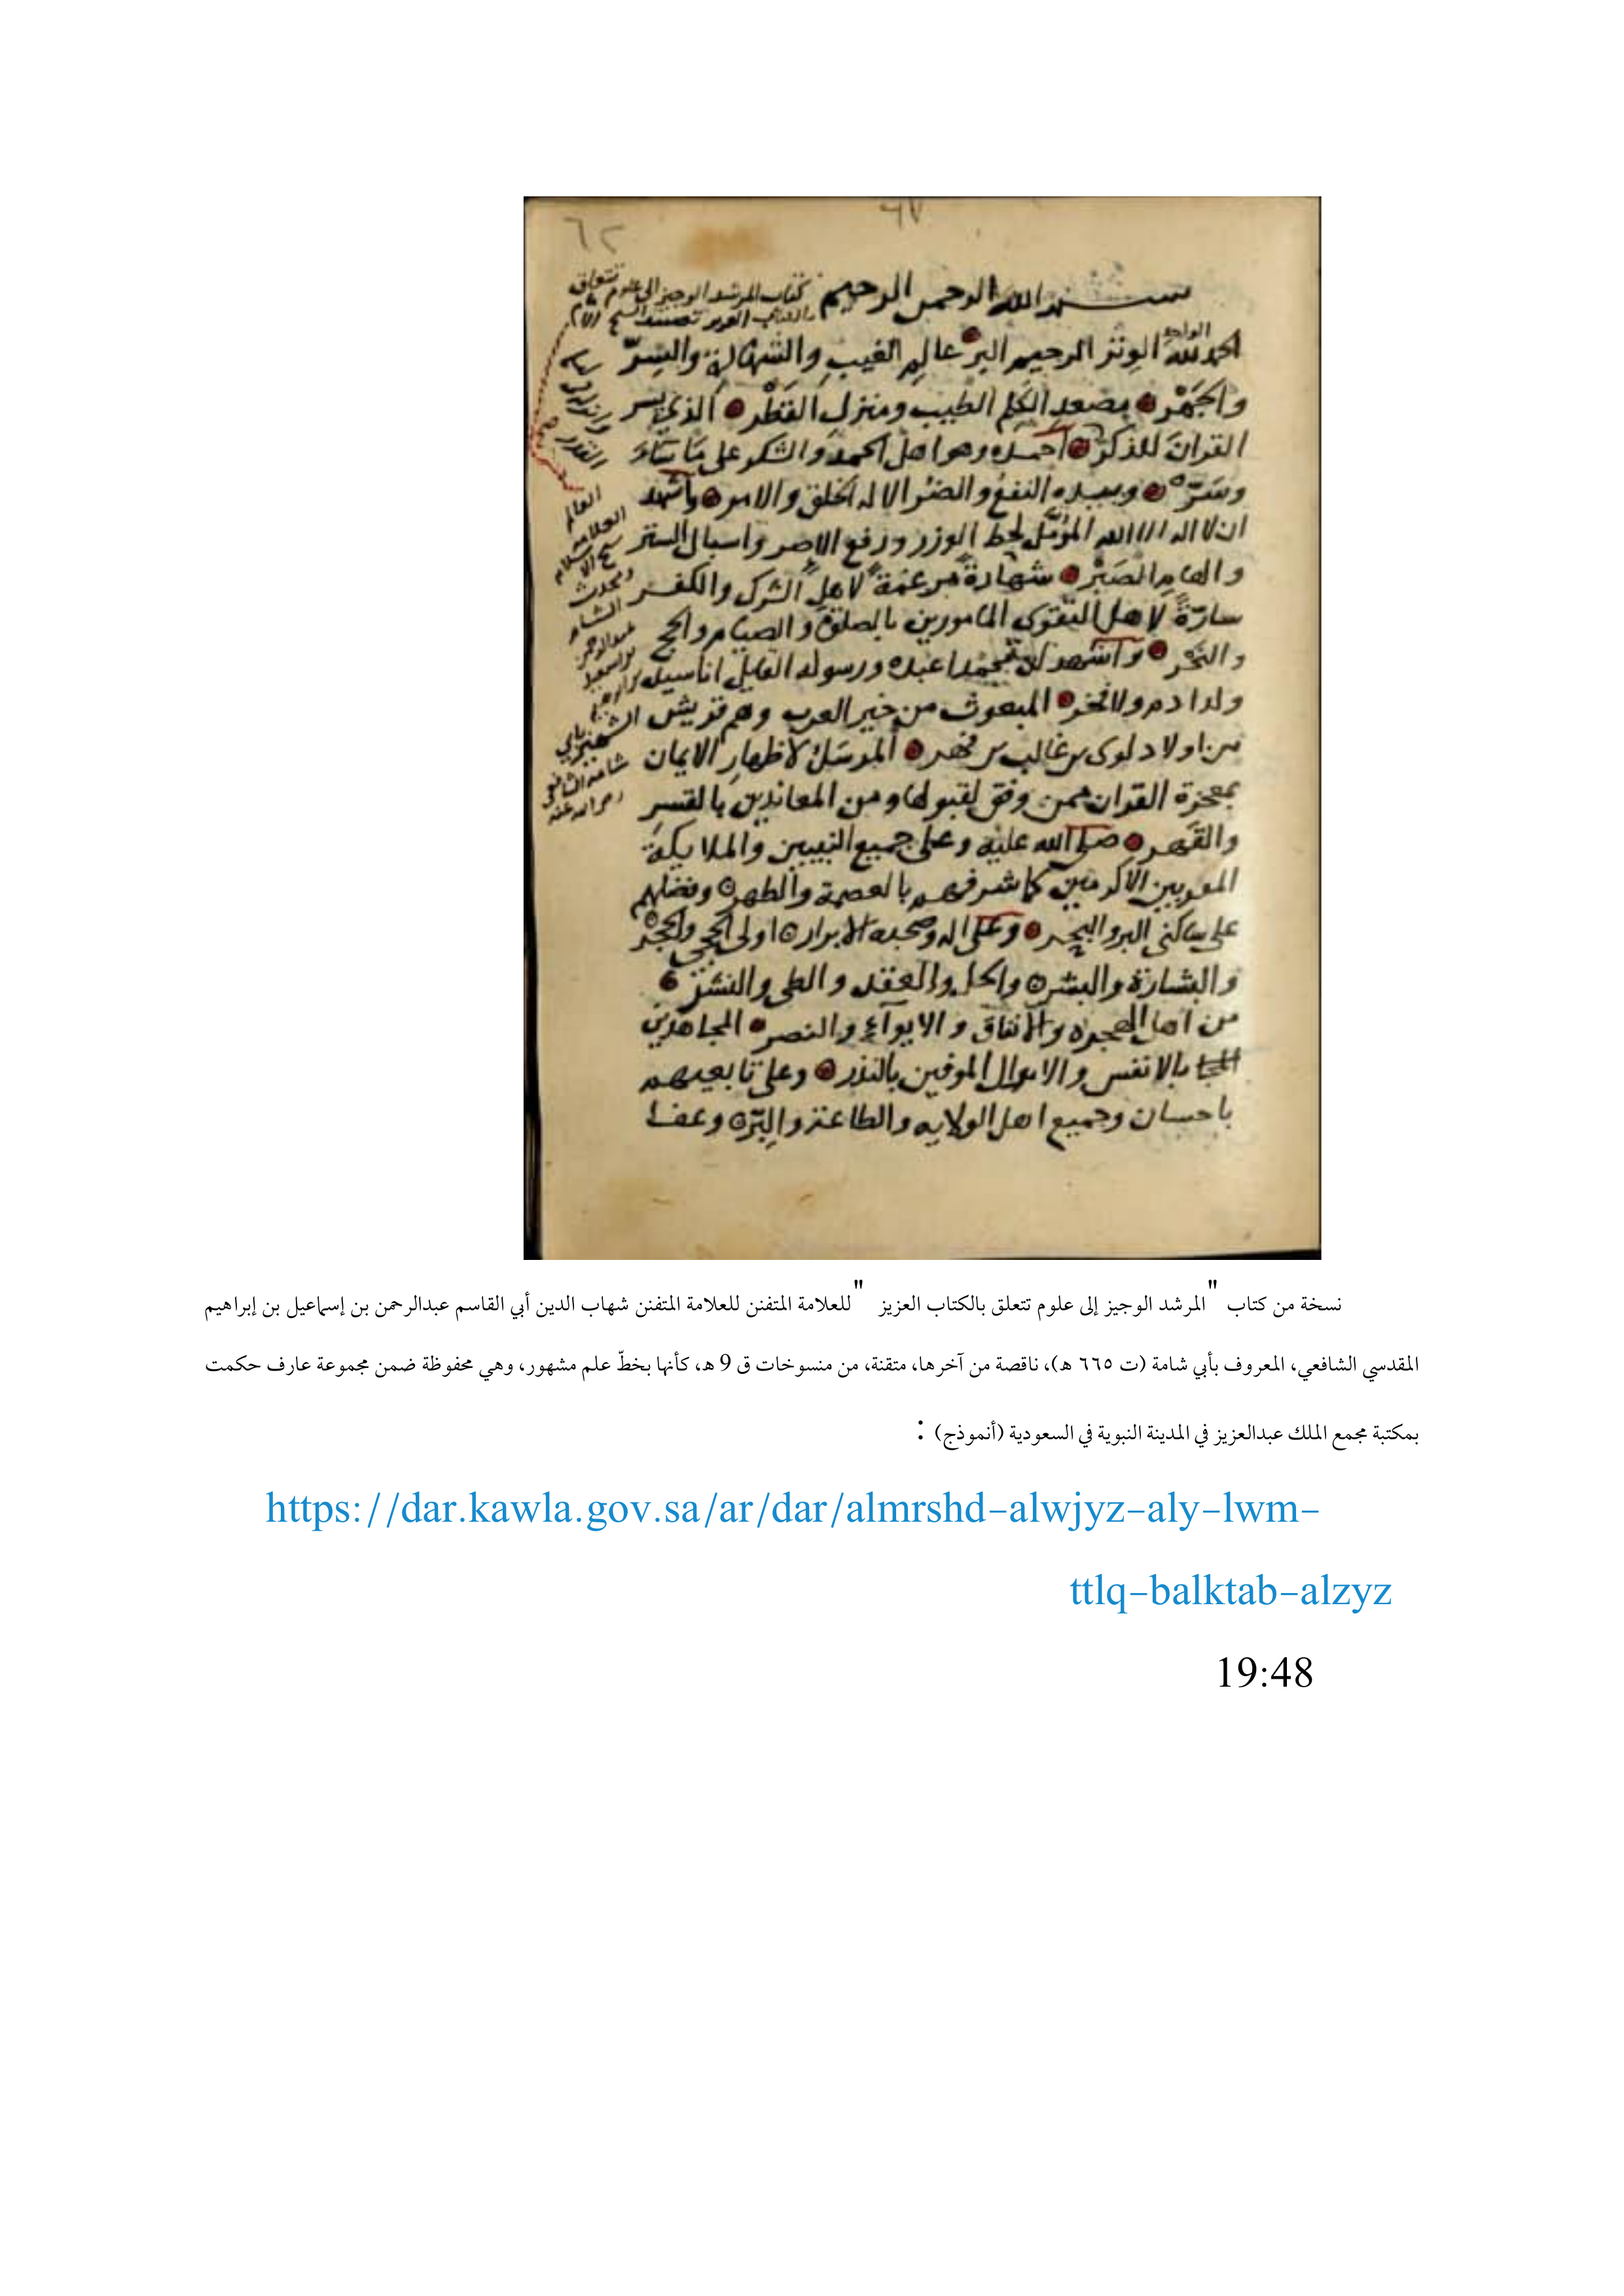 ٦٧
٦٢
بسم الله الرحمن الرحيم
كتاب المرشد الوجيز الى علوم تتعلق
بالكتاب العزيز تصنيف الشيخ الامام
الحمد لله الواحد الوتر الرحيم البر عالم الغيب والشهادة والسر
والجهر مصعد الكلم الطيب ومنزل القطر الذي يسر
القران للذكر احمده وهو اهل الحمد والشكر على ما ساء
وسر وبيده النفع والضر الا له الخلق والامر واشهد
ان لا اله الا الله المؤمل لحط الوزر ورفع الاصر واسبال الستر
والهام الصبر شهادة مرغمة لاهل الشرك والكفر
سارة لاهل التقوى المامورين بالصلوة والصيام والحج
والنحر واشهد ان محمدا عبده ورسوله القايل انا سيد
ولد ادم ولا فخر المبعوث من خير العرب وهم قريش
من اولاد لوى بن غالب بن فهر المرسل لاظهار الايمان
بمعجزة القران ممن وفق لقبولها ومن المعاندين بالقسر
والقهر صلى الله عليه وعلى جميع النبيين والملايكة
المقربين الاكرمين كما شرفهم بالعصمة والطهر وفضلهم
على ساكني البر والبحر وعلى اله وصحبه الابرار اولى الحجى والحجر
والبشارة والبشر والحل والعقد والطي والنشر
من اهل الهجره والانفاق والايواء والنصر المجاهدين
بالانفس والاموال الموفين بالنذر وعلى تابعيهم
باحسان وجميع اهل الولايه والطاعة والبر وعفا
العالم
العلامه
شيخ الاسلام
ومحدث
الشام
عبد الرحمن
بن اسمعيل
بن ابراهيم
الشهير بابي
شامه الشافعي
رضي الله عنه
نسخة من كتاب "المرشد الوجيز إلى علوم تتعلق بالكتاب العزيز "للعلامة المتفنن للعلامة المتفنن شهاب الدين أبي القاسم عبدالرحمن بن إسماعيل بن إبراهيم
المقدسي الشافعي، المعروف بأبي شامة (ت ٦٦٥ هـ)، ناقصة من آخرها، متقنة، من منسوخات ق 9 هـ، كأنها بخطّ علم مشهور، وهي محفوظة ضمن مجموعة عارف حكمت
بمكتبة مجمع الملك عبدالعزيز في المدينة النبوية في السعودية (أنموذج) :
https://dar.kawla.gov.sa/ar/dar/almrshd-alwjyz-aly-lwm-
ttlq-balktab-alzyz
19:48